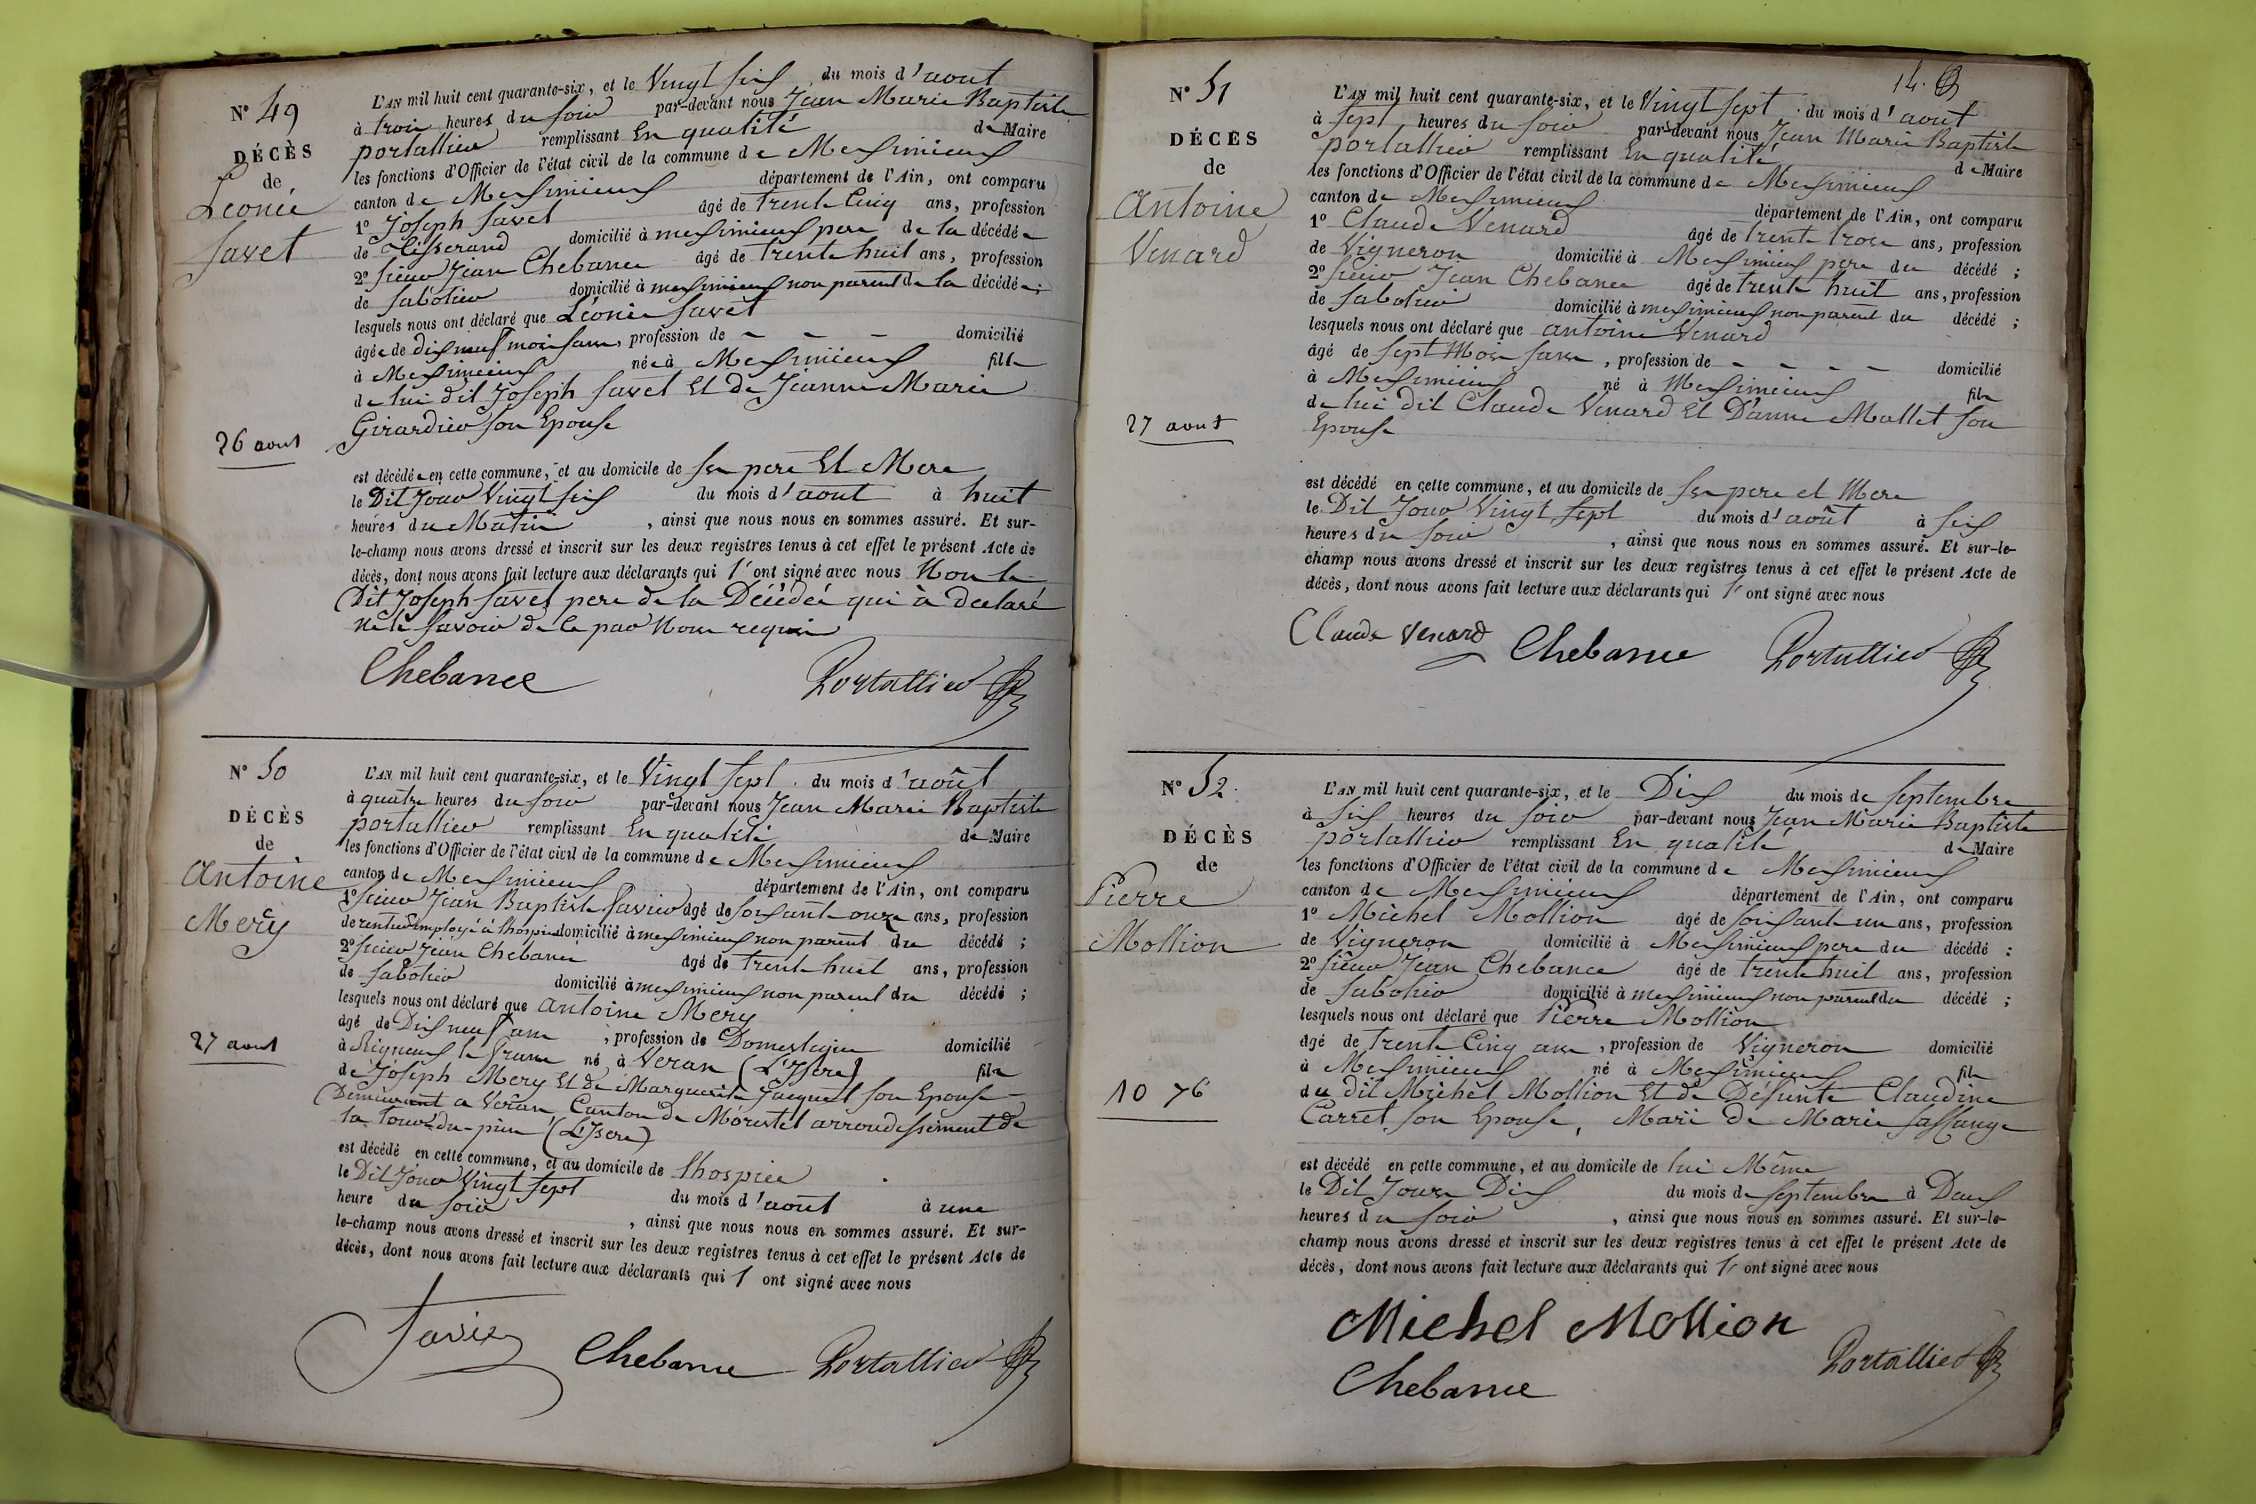 N° 49
DÉCÈS
de
Léonie
Savet
26 aout
L'AN mil huit cent quarante-six, et le Vingt six du mois d'aout
à trois heures du soir par-devant nous Jean Marie Baptiste
portallier remplissant En qualité de Maire
les fonctions d'Officier de l'état civil de la commune de Meximieux
canton de Meximieux département de l'Ain, ont comparu
1° Joseph Savet âgé de trente Cinq ans, profession
de Tisserand domicilié à meximieux pere de la décédée
2° sieur Jean Chebance âgé de trente huit ans, profession
de sabotier domicilié à meximieux non parent de la décédée;
lesquels nous ont déclaré que Léonie Savet
âgée de dix neuf mois sans, profession de - - - domicilié
à Meximieux née à Meximieux fille
de lui dit Joseph Savet Et de Jeanne Marie
Girardier son Epouse
est décédée en cette commune, et au domicile de ses pere Et Mere
le Dit Jour Vingt six du mois d'aout à huit
heures du Matin, ainsi que nous nous en sommes assuré. Et sur-
le-champ nous avons dressé et inscrit sur les deux registres tenus à cet effet le présent Acte de
décès, dont nous avons fait lecture aux déclarants qui l' ont signé avec nous Non le
Dit Joseph Savet pere de la Décédée qui à declaré
ne le savoir de ce par Nous requis
Chebance Portallier
N° 50
DÉCÈS
de
Antoine
Mery
27 aout
L'AN mil huit cent quarante-six, et le Vingt sept du mois d'août
à quatre heures du soir par-devant nous Jean Marie Baptiste
portallier remplissant En qualité de Maire
les fonctions d'Officier de l'état civil de la commune de Meximieux
canton de Meximieux département de l'Ain, ont comparu
1° sieur Jean Baptiste Favier âgé de soixante onze ans, profession
de rentier employé à l'hospice domicilié à meximieux non parent du décédé;
2° sieur Jean Chebance âgé de trente huit ans, profession
de sabotier domicilié à meximieux non parent du décédé;
lesquels nous ont déclaré que Antoine Mery
âgé de Dix neuf ans, profession de Domestique domicilié
à Rigneux le Franc né à Veran (L'Isere) fils
de Joseph Mery Et de Marguerite Jacquet son Epouse
Demeurant a Veran Canton de Morestel arrondissement de
la tour-du-pin (L'Isere)
est décédé en cette commune, et au domicile de l'hospice
le Dit Jour Vingt sept du mois d'aout à une
heure du soir, ainsi que nous nous en sommes assuré. Et sur-
le-champ nous avons dressé et inscrit sur les deux registres tenus à cet effet le présent Acte de
décès, dont nous avons fait lecture aux déclarants qui l' ont signé avec nous
Favier Chebance Portallier
14.
N° 51
DÉCÈS
de
Antoine
Venard
27 aout
L'AN mil huit cent quarante-six, et le Vingt sept du mois d'aout
à sept heures du soir par-devant nous Jean Marie Baptiste
portallier remplissant En qualité de Maire
les fonctions d'Officier de l'état civil de la commune de Meximieux
canton de Meximieux département de l'Ain, ont comparu
1° Claude Venard âgé de trente trois ans, profession
de Vigneron domicilié à Meximieux pere du décédé;
2° sieur Jean Chebance âgé de trente huit ans, profession
de sabotier domicilié à meximieux non parent du décédé;
lesquels nous ont déclaré que antoine Venard
âgé de sept Mois sans, profession de - - - - domicilié
à Meximieux né à Meximieux fils
de lui dit Claude Venard Et D'anne Mallet son
Epouse
est décédé en cette commune, et au domicile de ses pere et Mere
le Dit Jour Vingt sept du mois d'août à six
heures du soir, ainsi que nous nous en sommes assuré. Et sur-le-
champ nous avons dressé et inscrit sur les deux registres tenus à cet effet le présent Acte de
décès, dont nous avons fait lecture aux déclarants qui l' ont signé avec nous
Claude Venard Chebance Portallier
N° 52.
DÉCÈS
de
Pierre
Mollion
10 7b
L'AN mil huit cent quarante-six, et le Dix du mois de septembre
à six heures du soir par-devant nous Jean Marie Baptiste
portallier remplissant En qualité de Maire
les fonctions d'Officier de l'état civil de la commune de Meximieux
canton de Meximieux département de l'Ain, ont comparu
1° Michel Mollion âgé de soixante un ans, profession
de Vigneron domicilié à Meximieux pere du décédé;
2° sieur Jean Chebance âgé de trente huit ans, profession
de sabotier domicilié à meximieux non parent du décédé;
lesquels nous ont déclaré que Pierre Mollion
âgé de trente Cinq ans, profession de Vigneron domicilié
à Meximieux né à Meximieux fils
du dit Michel Mollion Et de Défunte Claudine
Carret son Epouse, Mari de Marie Sassange
est décédé en cette commune, et au domicile de lui Même
le Dit Jours Dix du mois de septembre à Deux
heures du soir, ainsi que nous nous en sommes assuré. Et sur-le-
champ nous avons dressé et inscrit sur les deux registres tenus à cet effet le présent Acte de
décès, dont nous avons fait lecture aux déclarants qui l' ont signé avec nous
Michel Mollion Portallier
Chebance